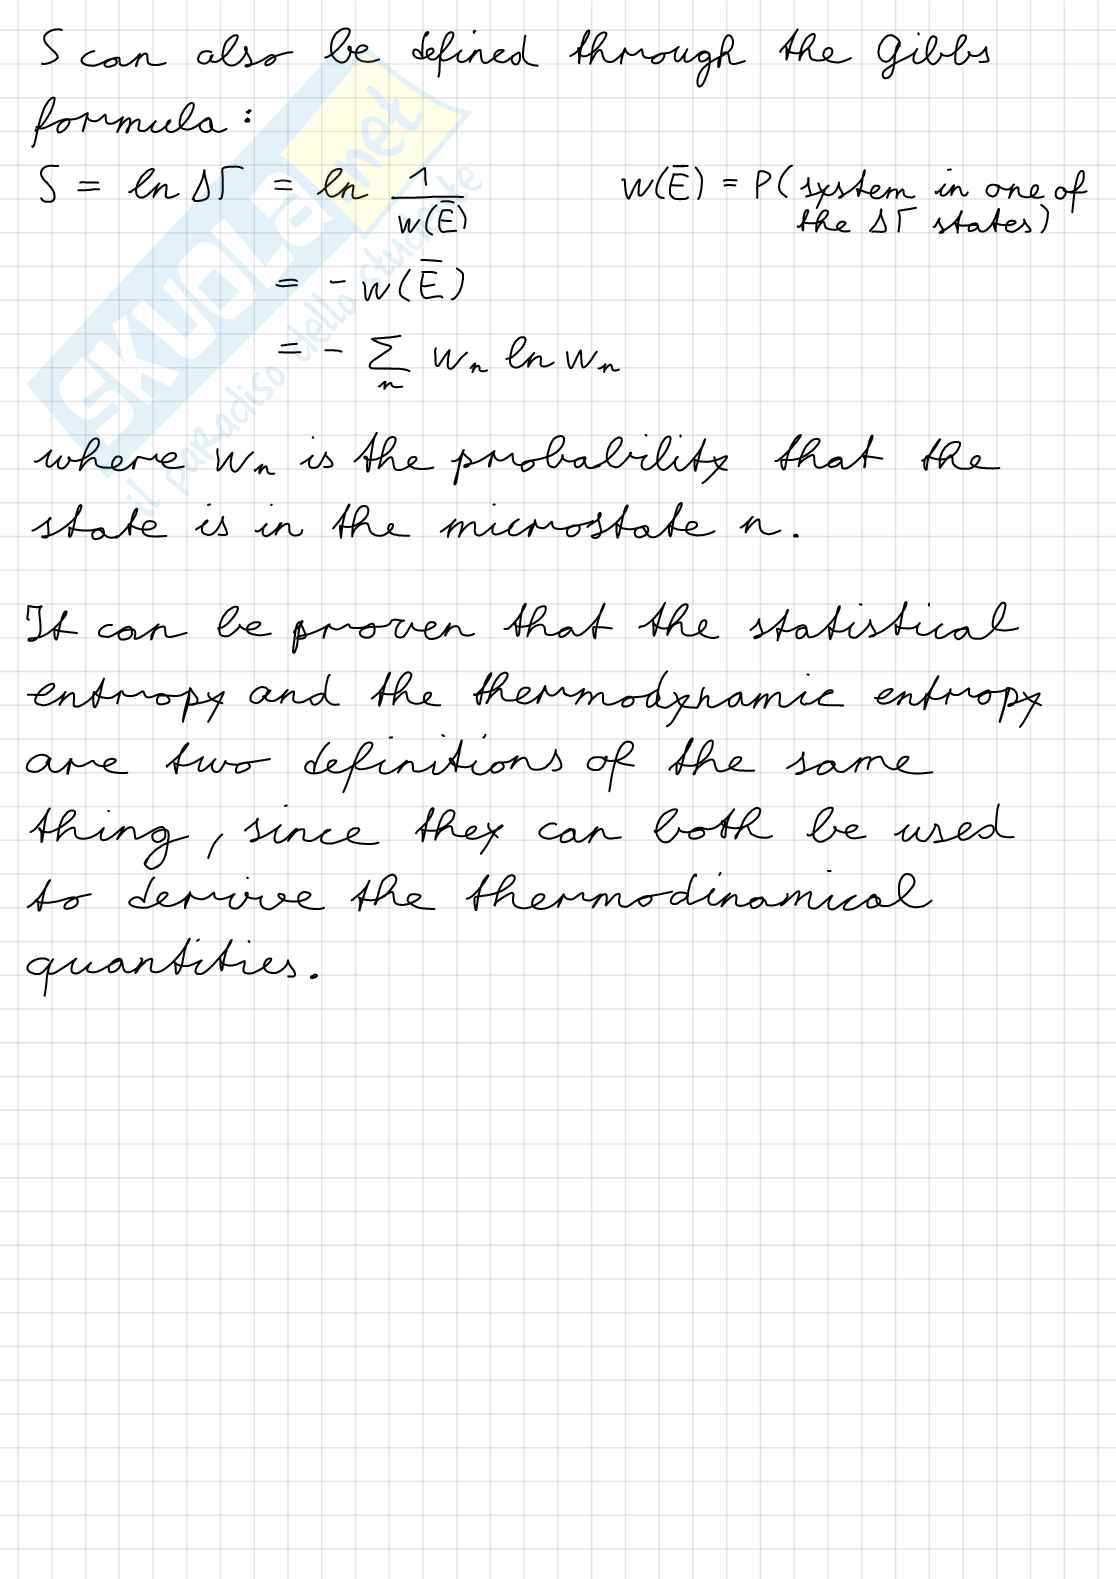 S can also be defined through the Gibbs
formula:
S = ln ΔΓ = ln 1/w(Ē)    w(Ē) = P(system in one of
the ΔΓ states)
= - w(Ē)
= - Σ_n w_n ln w_n
where w_n is the probability that the
state is in the microstate n.
It can be proven that the statistical
entropy and the thermodynamic entropy
are two definitions of the same
thing, since they can both be used
to derive the thermodinamical
quantities.
SKUOLA.net
il paradiso dello studente